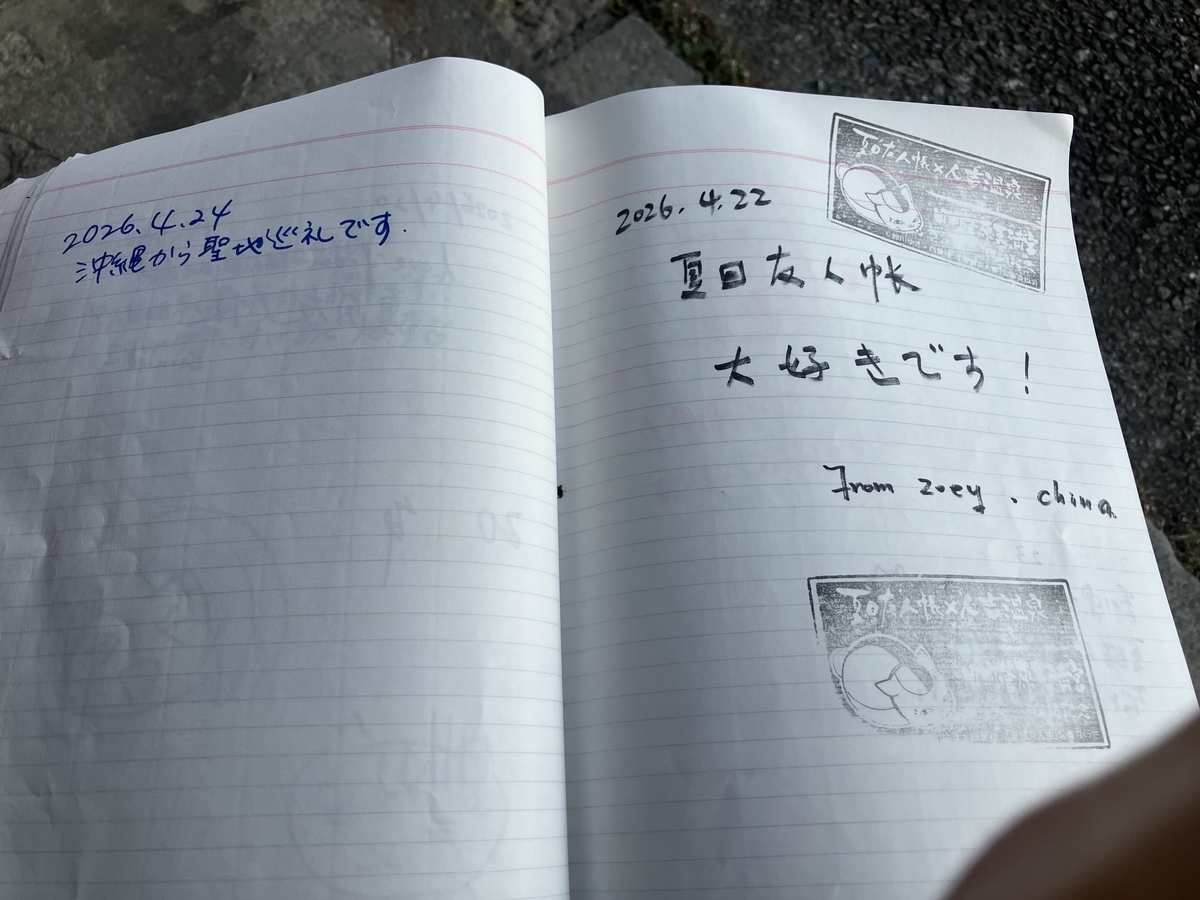 2026.4.24
沖縄から聖地巡礼です.
2026.4.22
夏目友人帳
大好きです!
From zoey . china
夏目友人帳×人吉温泉
夏目友人帳×人吉温泉